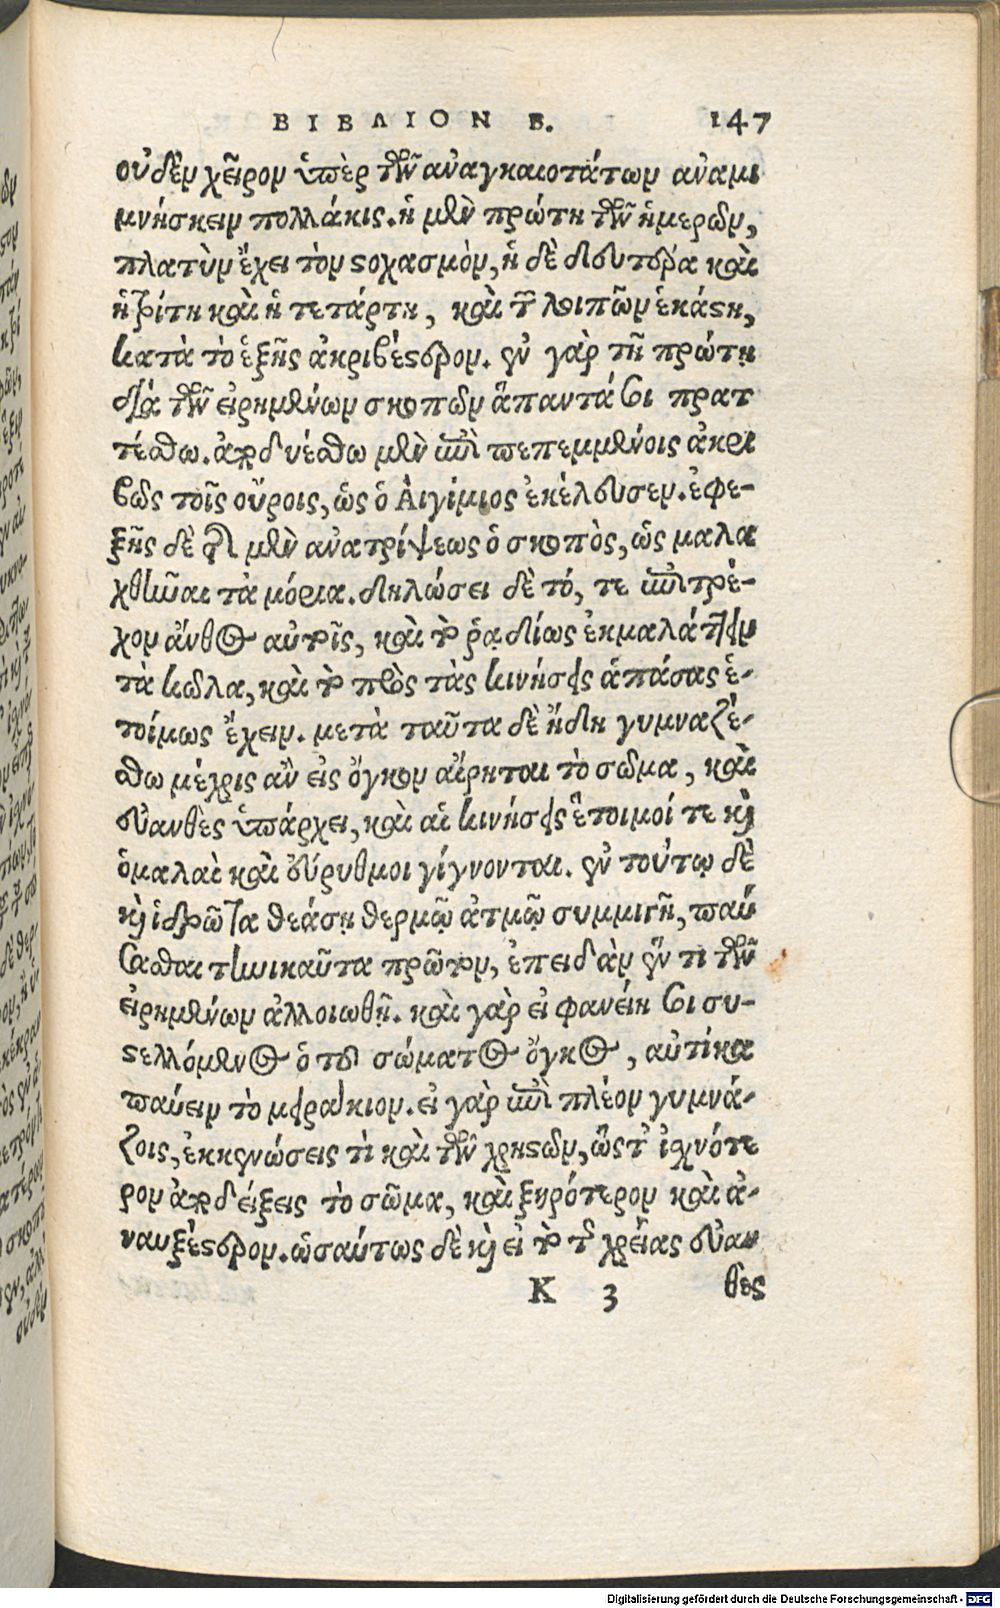 ΒΙΒΛΙΟΝ Β. 147
οὐδὲν χεῖρον ὑπὲρ τῶν ἀναγκαιοτάτων ἀναμι
μνήσκειν πολλάκις. ἡ μὲν πρώτη τῶν ἡμερῶν,
πλατὺν ἔχει τὸν στοχασμὸν, ἡ δὲ δευτέρα καὶ
ἡ τρίτη καὶ ἡ τετάρτη, καὶ τῶν λοιπῶν ἑκάστη,
κατὰ τὸ ἑξῆς ἀκριβέστερον. ἐν γὰρ τῇ πρώτῃ
διὰ τῶν εἰρημένων σκοπῶν ἅπαντά σοι πρατ
τέσθω. ἀποδυέσθω μὲν ἐπὶ πεπεμμένοις ἀκρι
βῶς τοῖς οὔροις, ὡς ὁ Αἰγίμιος ἐκέλευσεν. ἐφε-
ξῆς δὲ τῆς μὲν ἀνατρίψεως ὁ σκοπὸς, ὡς μαλα
χθῆναι τὰ μόρια. δηλώσει δὲ τό, τε ἐπιτρέ-
χον ἄνθος αὐτοῖς, καὶ τὸ ῥᾳδίως ἐκμαλάττειν
τὰ κῶλα, καὶ τὸ πρὸς τὰς κινήσεις ἁπάσας ἑ-
τοίμως ἔχειν. μετὰ ταῦτα δὲ ἤδη γυμναζέ-
σθω μέχρις ἂν εἰς ὄγκον αἴρηται τὸ σῶμα, καὶ
εὐανθὲς ὑπάρχει, καὶ αἱ κινήσεις ἕτοιμοί τε καὶ
ὁμαλαὶ καὶ εὔρυθμοι γίγνονται. ἐν τούτῳ δὲ
καὶ ἱδρῶτα θεάσῃ θερμῷ ἀτμῷ συμμιγῆ, παύ
σασθαι τηνικαῦτα πρῶτον, ἐπειδὰν ἕν τι τῶν
εἰρημένων ἀλλοιωθῇ. καὶ γὰρ εἰ φανείη σοι συ-
στελλόμενος ὁ τοῦ σώματος ὄγκος, αὐτίκα
παύειν τὸ μειράκιον. εἰ γὰρ ἐπὶ πλέον γυμνά-
ζοις, ἐκκενώσεις τὶ καὶ τῶν χρηστῶν, ὥστ' ἰσχνότε
ρον ἀποδείξεις τὸ σῶμα, καὶ ξηρότερον καὶ ἀ-
ναυξέστερον. ὡσαύτως δὲ καὶ εἰ τὸ τῆς χρείας εὐαν
θες
K 3
Digitalisierung gefördert durch die Deutsche Forschungsgemeinschaft - DFG